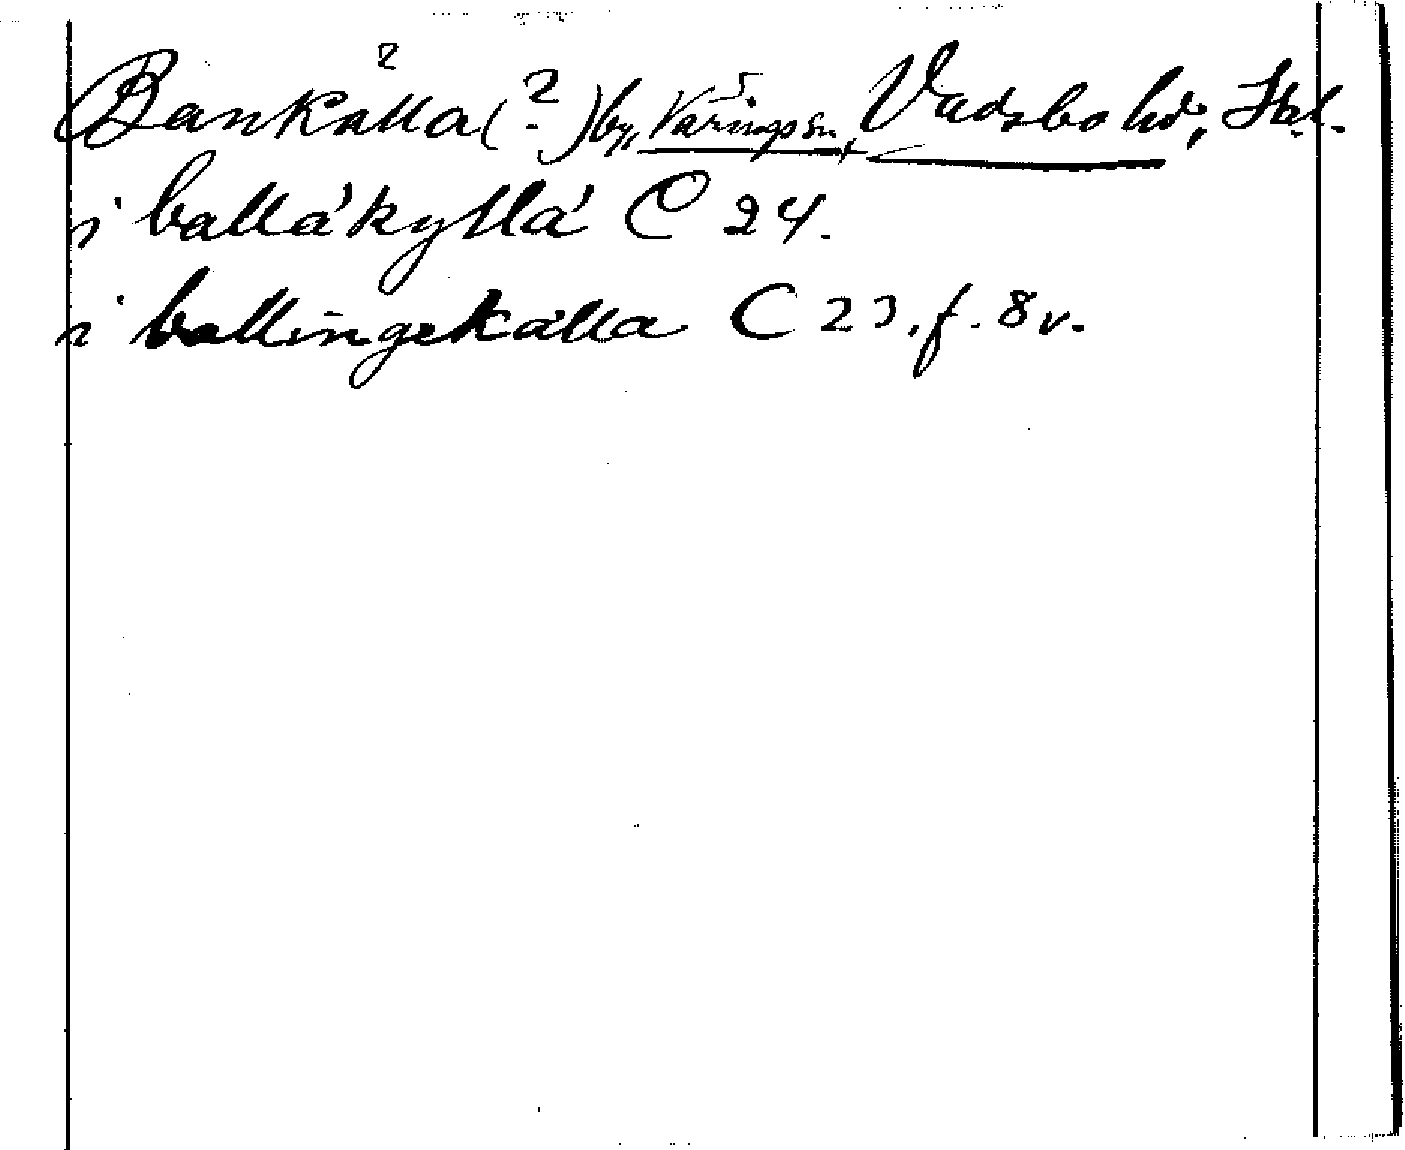 Bankälla (?) by, Värings sn, Vadsbo hd, Skl.
i balläkyllä C 24.
i ballingekälla C 23, f. 8 v.